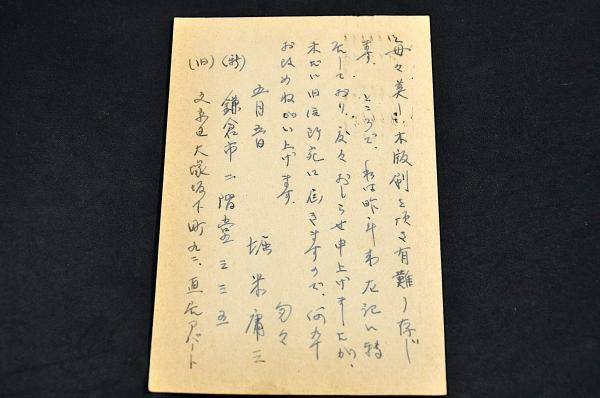 毎々美しい木版刷を頂き有難う存じ
ます。ところで、私は昨年末左記に転
居しており、度々おしらせ申上げましたが、
未だに旧住所宛に届きますので、何卒
お改めねがい上げます。
匆々
五月五日
堀米庸三
(新) 鎌倉市二階堂三三五
(旧) 文京区大塚坂下町九二、直アパート